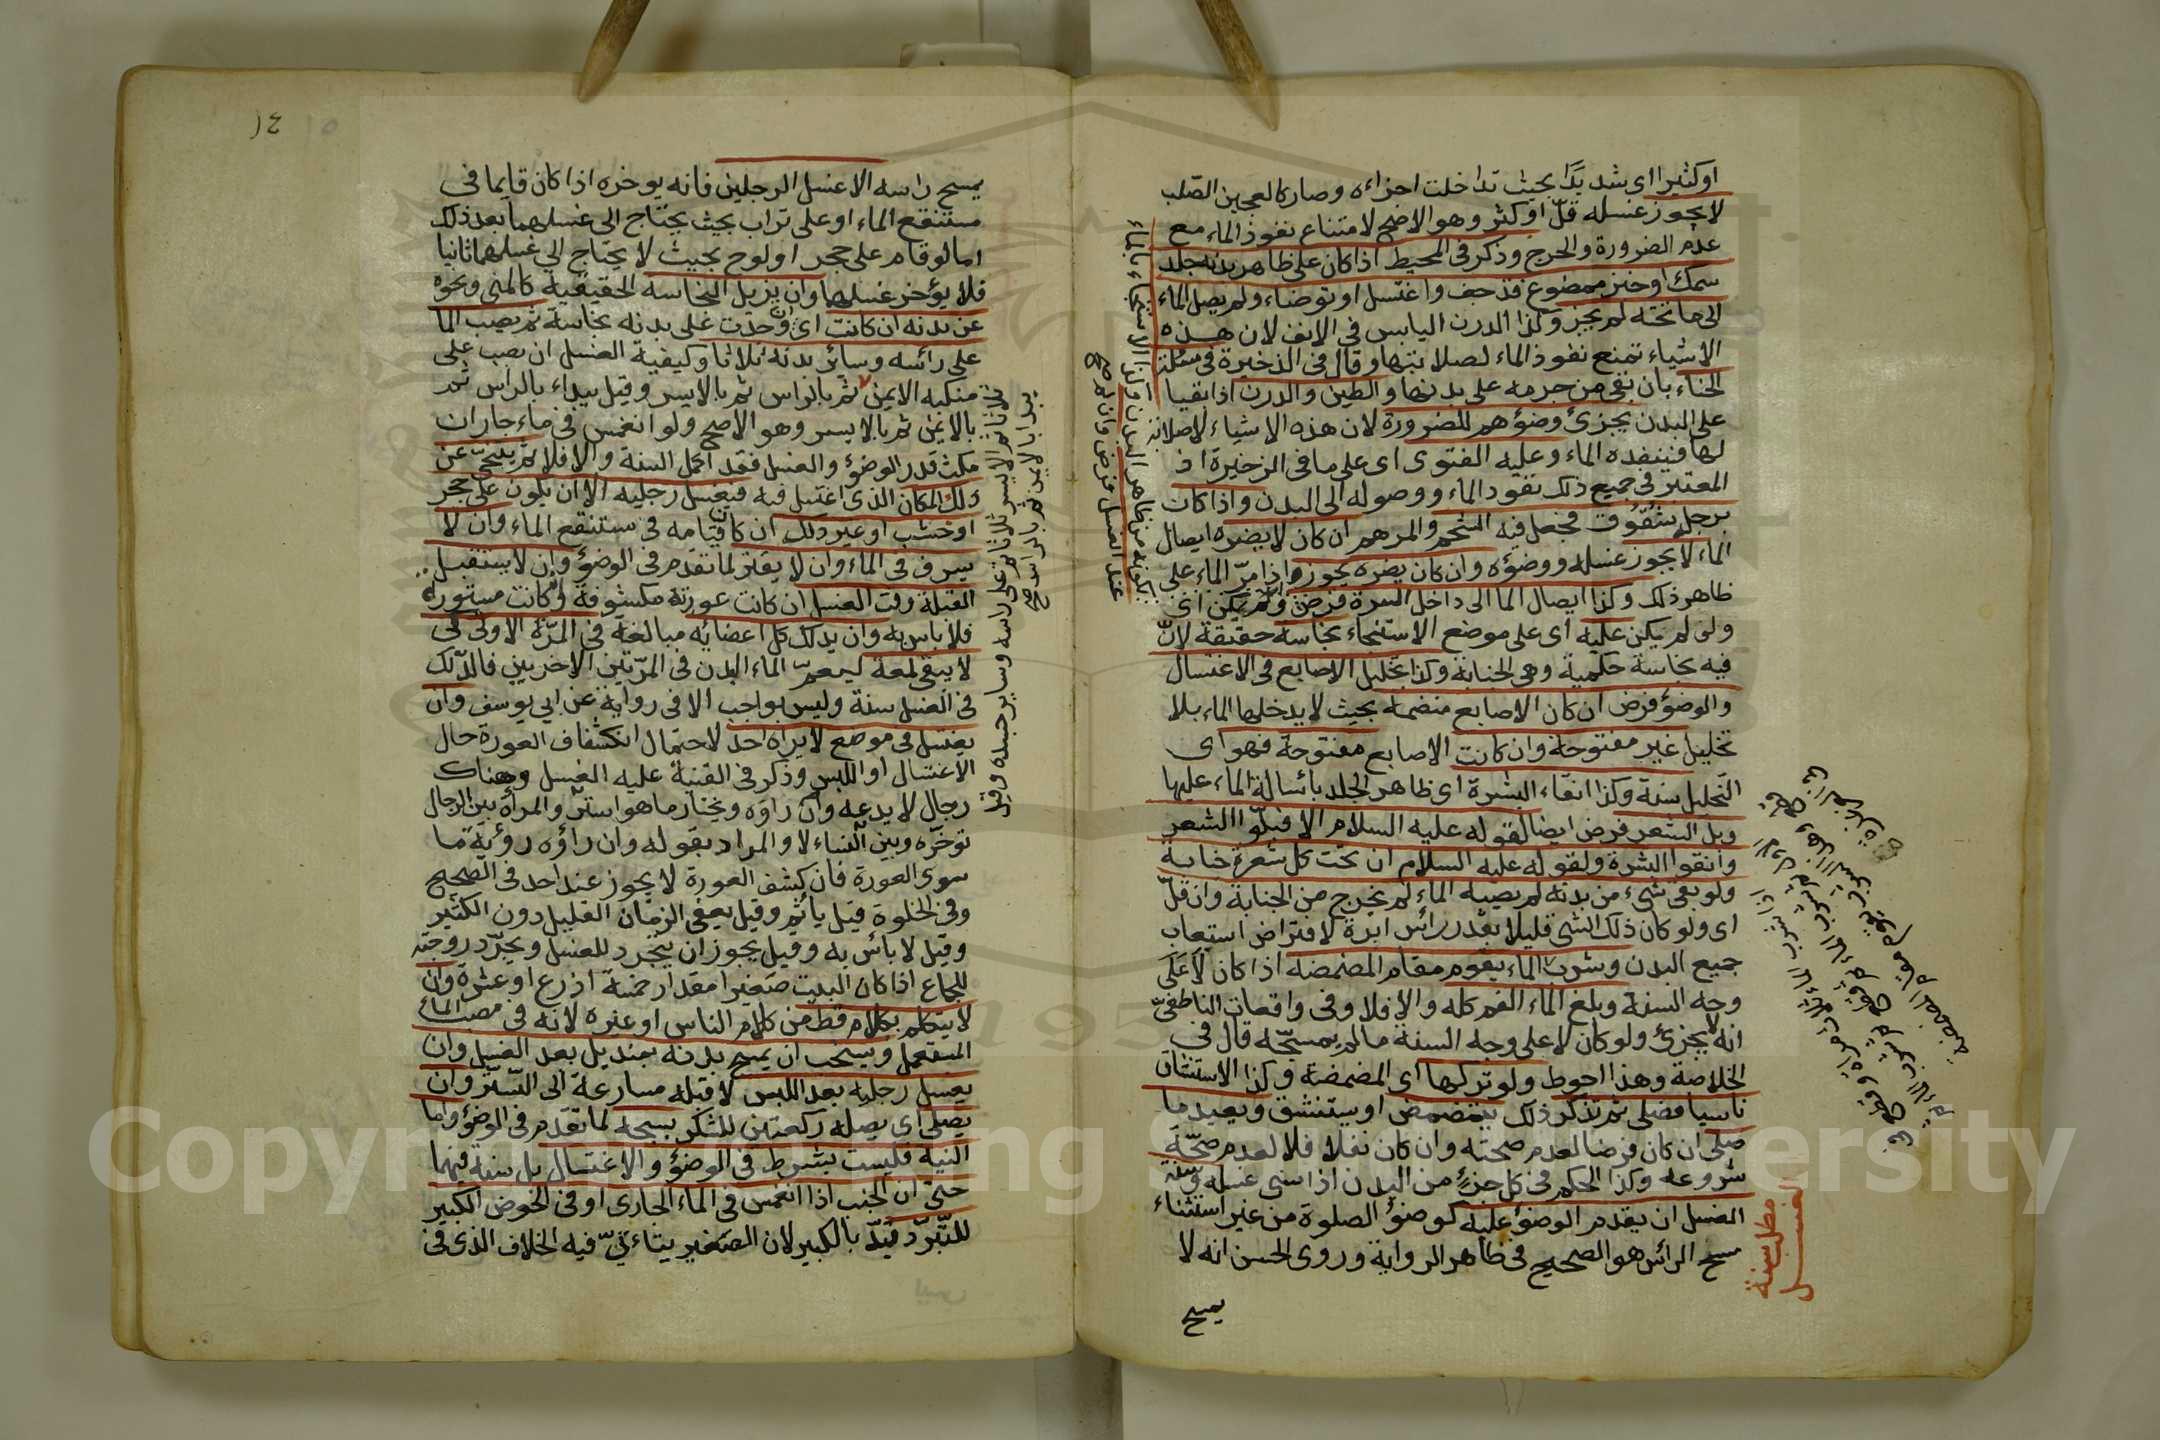 او كثيرا اى شديدا بحيث تداخلت اجزاءه وصار كالعجين الصلب
لا يجوز غسله قلّ او كثر وهو الاصح لامتناع نفوذ الماء مع
عدم الضرورة والحرج وذكر فى المحيط اذا كان على ظاهر بدنه جلد
سمك او خبز ممضوغ قد جف واغتسل او توضاء ولم يصل الماء
الى ما تحته لم يجز وكذا الدرن اليابس فى الانف لان هذه
الاشياء تمنع نفوذ الماء لصلابتها وقال فى الذخيرة فى مسئلة
الحناء بان بقى من جرمه على بدنها والطين والدرن اذا بقيا
على البدن يجزئ وضؤهم للضرورة لان هذه الاشياء لا صلابة
لها فينفده الماء وعليه الفتوى اى على ما فى الزخيرة اذ
المعتبر فى جميع ذلك نفود الماء ووصوله الى البدن واذا كان
برجله شقوق فجعل فيه الشحم والمرهم ان كان لا يضره ايصال
الماء لا يجوز غسله ووضؤه وان كان يضره يجوز واذا مرّ الماء على
ظاهر ذلك وكذا ايصال الما الى داخل السرة فرض
ولو لم يكن عليه اى على موضع الاستنجاء نجاسة حقيقة لانّ
فيه نجاسة حكمية وهى الجنابة وكذا تخليل الاصابع فى الاغتسال
والوضؤ فرض ان كان الاصابع منضمة بحيث لا يدخلها الماء بلا
تخليل غير مفتوحة وان كانت الاصابع مفتوحة فهو اى
التخليل سنة وكذا انقاء البشرة اى ظاهر الجلد باسالة الماء عليها
وبل الشعر فرض ايضا لقوله عليه السلام الا فبلّوا الشعر
وانقوا البشرة ولقوله عليه السلام ان تحت كل شعرة جنابة
ولو بقى شىء من بدنه لم يصبه الماء لم يخرج من الجنابة وان قلّ
اى ولو كان ذلك الشى قليلا بقدر رأس ابرة لافتراض استيعاب
جميع البدن وشرب الماء يقوم مقام المضمضة اذا كان لا على
وجه السنة وبلغ الماء الفم كله والا فلا وفى واقعات الناطفىّ
انه لا يجزئ ولو كان لا على وجه السنة ما لم يمسجّه قال فى
الخلاصة وهذا احوط ولو تركها اى المضمضة وكذا الاستنشاق
ناسيا فصلى ثم تذكر ذلك يتمضمض او يستنشق ويعيد ما
صلى ان كان فرضا لعدم صحته وان كان نفلا فلا لعدم صحّة
شروعه وكذا الحكم فى كل جزء من البدن اذا نسى غسله وسنة
الغسل ان يقدم الوضؤ عليه كوضؤ الصلوة من غير استثناء
مسح الرأس هو الصحيح فى ظاهر الرواية وروى الحسن انه لا
يمسح
مطلب سنة
الغسل
١٤
يمسح راسه الا غسل الرجلين فانه يوخره اذا كان قايما فى
مستنقع الماء او على تراب بحيث يحتاج الى غسلهما بعد ذلك
اما لو قام على حجر او لوح بحيث لا يحتاج الى غسلهما ثانيا
فلا يؤخر غسلهما وان يزيل النجاسة الحقيقية كالمنى ونحوه
عن بدنه ان كانت اى وجدت على بدنه نجاسة ثم يصب الما
على رأسه وساير بدنه ثلاثا وكيفية الغسل ان يصب على
منكبه الايمن ثم بالراس ثم بالايسر وقيل يبداء بالراس ثم
بالايمن ثم بالايسر وهو الاصح ولو انغمس فى ماء جار ان
مكث قدر الوضؤ والغسل فقد اكمل السنة والا فلا ثم يتنحّى عن
ذلك المكان الذى اغتسل فيه فيغسل رجليه الا ان يكون على حجر
او خشب او غير ذلك ان كان قيامه فى مستنقع الماء وان لا
يسرف فى الماء وان لا يقتر لما تقدم فى الوضؤ وان لا يستقبل
القبلة وقت الغسل ان كانت عورته مكشوفة وان كانت مستورة
فلا باس به وان يدلك كل اعضائه مبالغة فى المرّة الاولى كى
لا يبقى لمعة ليعمّ الماء البدن فى المرّتين الاخريين فالدلك
فى الغسل سنة وليس بواجب الا فى رواية عن ابى يوسف وان
يغتسل فى موضع لا يراه احد لاحتمال انكشاف العورة حال
الاغتسال او اللبس وذكر فى القنية عليه الغسل وهناك
رجال لا يدعه وان راوه ويختار ما هو استر والمرأة بين الرجال
توخّره وبين النساء لا والمراد بقوله وان راؤه رؤية ما
سوى العورة فان كشف العورة لا يجوز عند احد فى الصحيح
وفى الخلوة قيل يأثم وقيل يعفى الزمان القليل دون الكثير
وقيل لا بأس به وقيل يجوز ان يتجرد للغسل ويجرّد زوجته
للجماع اذا كان البيت صغيرا مقدار خمسة اذرع او عشرة وان
لا يتكلم بكلام قط من كلام الناس او غيره لانه فى مصب الماء
المستعمل ويستحب ان يمسح بدنه بمنديل بعد الغسل وان
يغسل رجليه بعد اللبس لا قبله مسارعة الى التستّر وان
يصلى اى يصله ركعتين للشكر بسبحه لما تقدم فى الوضؤ واما
النية فليست بشرط فى الوضؤ والاغتسال بل سنة فيهما
حتى ان الجنب اذا انغمس فى الماء الجارى او فى الحوض الكبير
للتبرّد قيّد بالكبير لان الصغير يتاءتىّ فيه الخلاف الذى فى